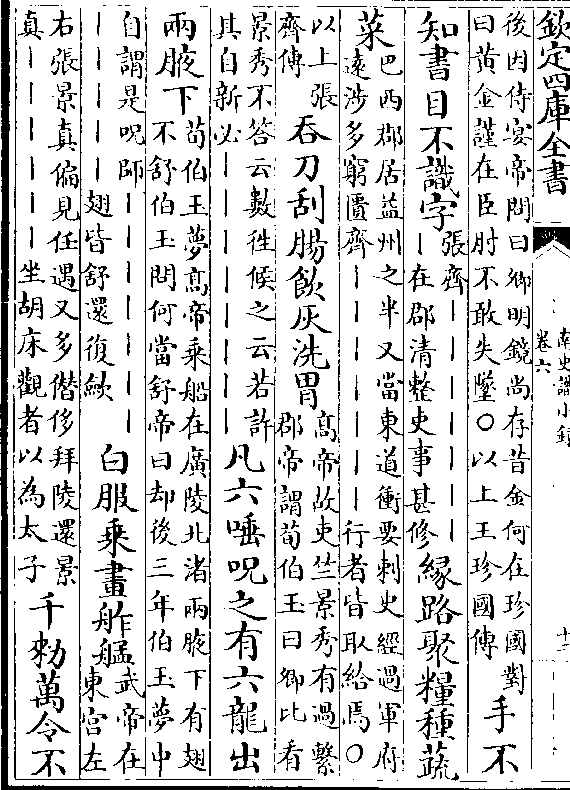 欽定四庫全書
南史識小錄
卷六
十二
後因侍宴帝問曰卿明鏡尚存昔金何在珍國對
曰黃金謹在臣肘不敢失墜〇以上王珍國傳
手不
知書目不識字
張齊｜｜｜｜｜｜｜
｜在郡清整吏事甚修
緣路聚糧種蔬
菜
巴西郡居益州之半又當東道衝要刺史經過軍府
遠涉多窮匱齊｜｜｜｜｜｜行者皆取給焉〇
以上張
齊傳
吞刀刮腸飲灰洗胃
高帝故吏竺景秀有過繫
郡帝謂荀伯玉曰卿比看
景秀不答云數徃候之云若許
其自新必｜｜｜｜｜｜｜｜
凡六唾呪之有六龍出
兩腋下
荀伯玉夢高帝乘船在廣陵北渚兩腋下有翅
不舒伯玉問何當舒帝曰却後三年伯玉夢中
自謂是呪師｜｜｜｜｜｜
｜｜｜｜｜翅皆舒還復歛
白服乘畫舴艋
武帝在
東宫左
右張景真偏見任遇又多僭侈拜陵還景
真｜｜｜｜｜｜坐胡床觀者以為太子
千敕萬令不